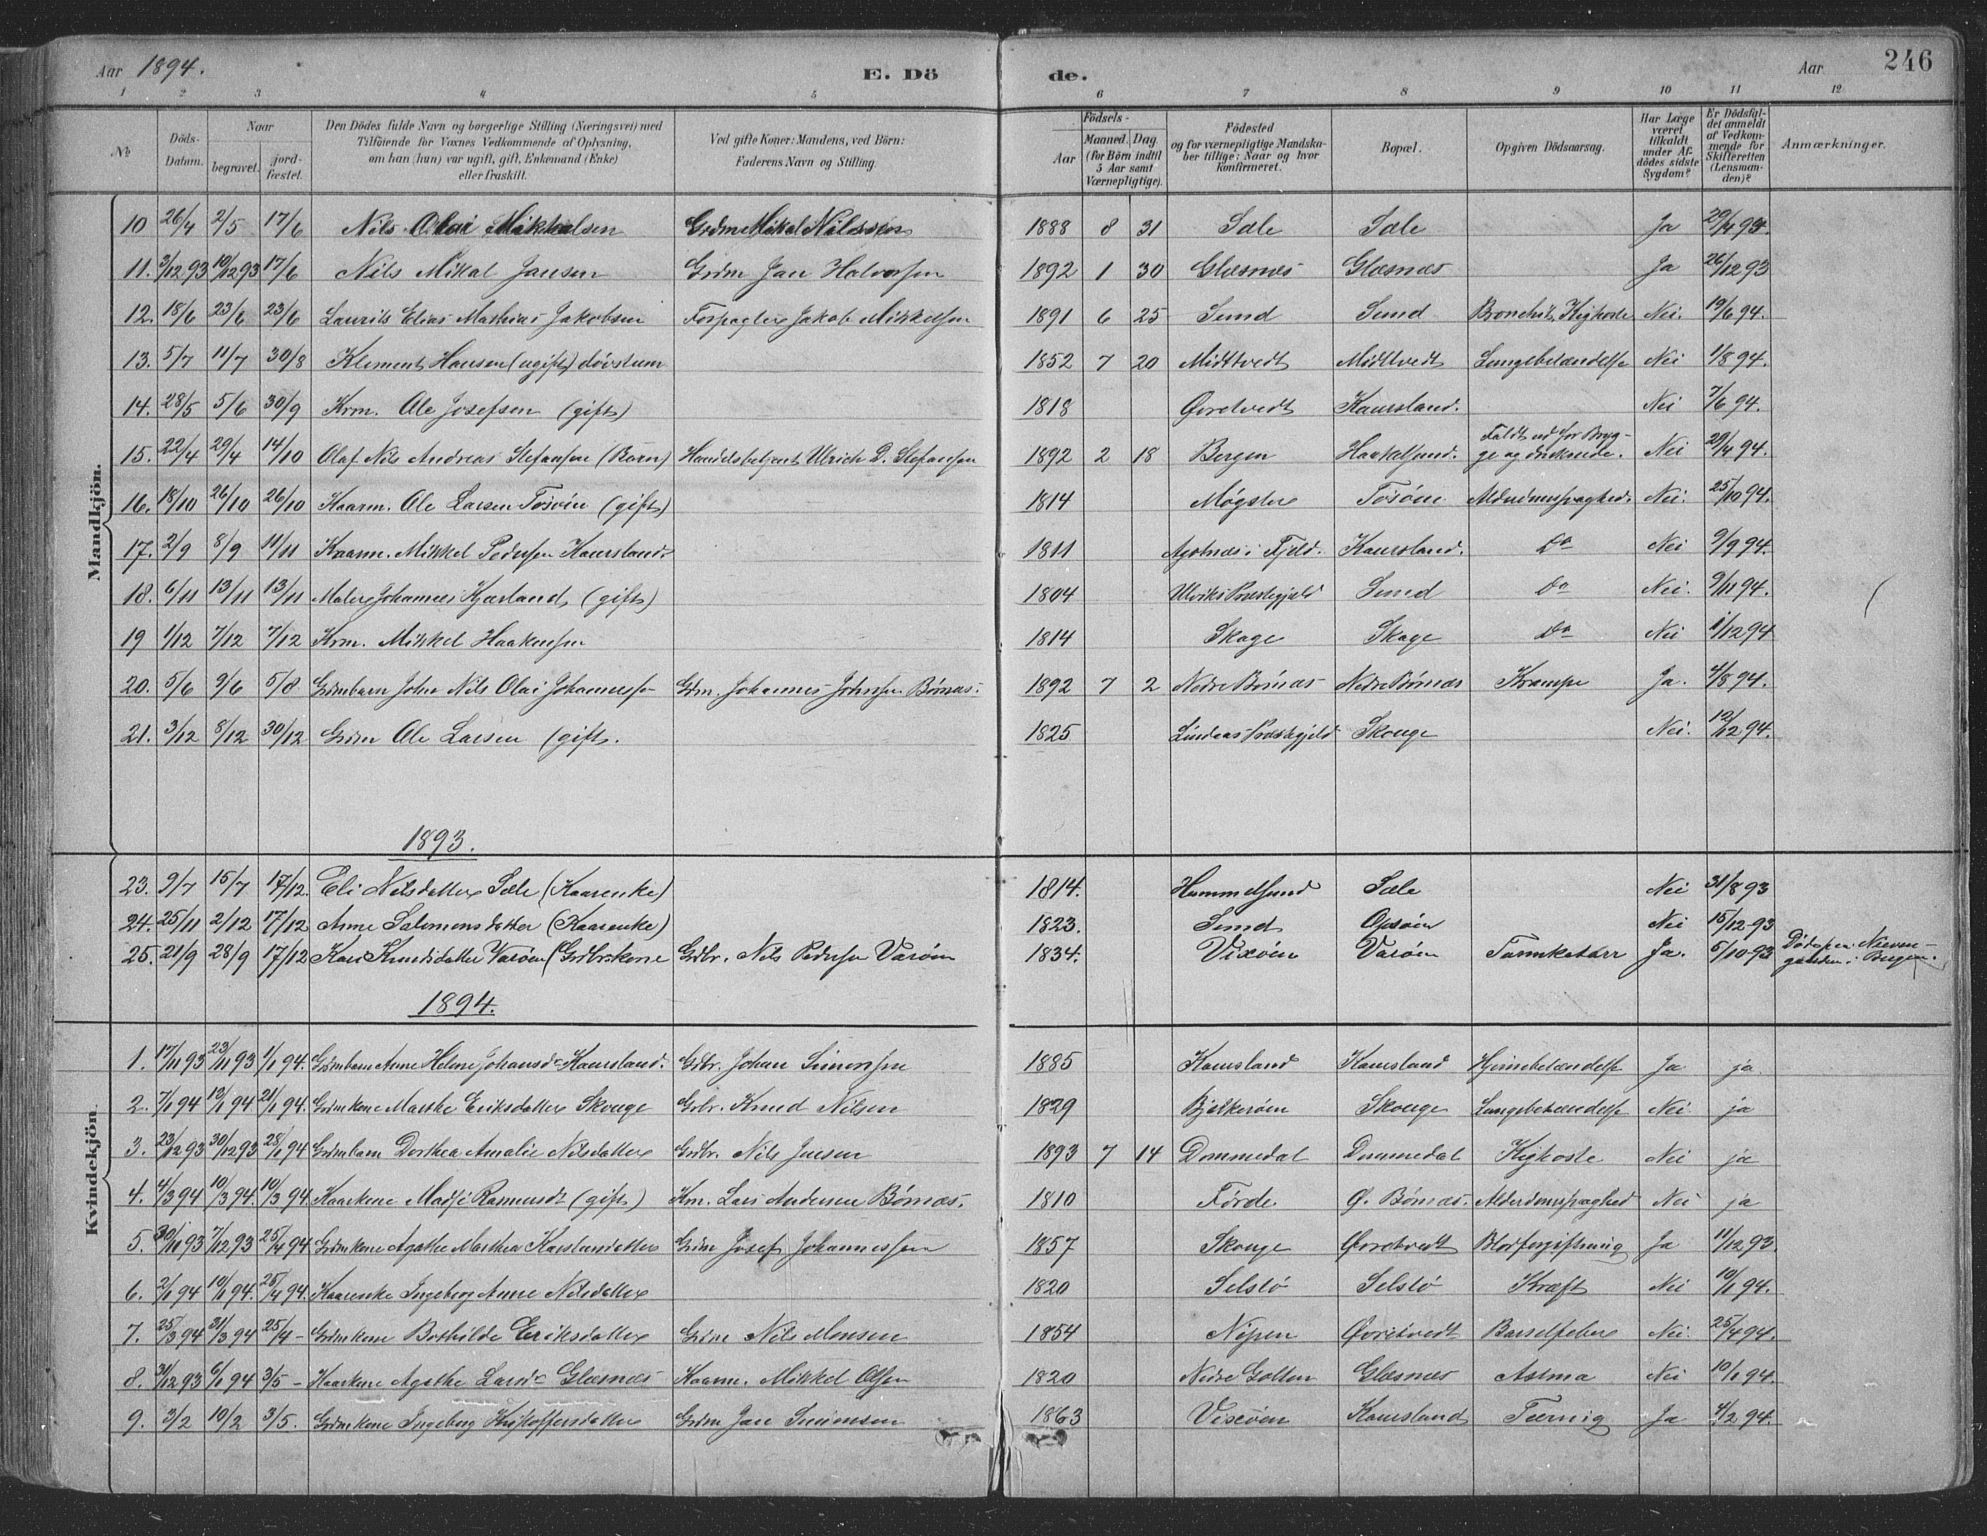 Aar 1894. E. Dö de. Aar 246
1 2 3 4 5 6 7 8 9 10 11 12
№ Döds-Datum. Naar begravet. jordfæstet. Den Dödes fulde Navn og borgerlige Stilling (Næringsvei) med Tilföiende for Voxnes Vedkommende af Oplysning, om han (hun) var ugift, gift, Enkemand (Enke) eller fraskilt. Ved gifte Koner: Mandens, ved Börn: Faderens Navn og Stilling. Födsels- Aar Maaned. Dag (for Börn indtil 5 Aar samt Værnepligtige). Födested og for værnepligtige Mandskaber tillige: Naar og hvor Konfirmeret. Bopæl. Opgiven Dödsaarsag. Har Læge været tilkaldt under Afdödes sidste Sygdom? Er Dödsfaldet anmeldt af Vedkommende for Skifteretten (Lensmanden)? Anmærkninger.
Mandkjön.
10 26/4 2/5 17/6 Nils Olai Mikkalsen Grdm Mikal Nilssen 1888 8 31 Sæle Sæle Ja 29/4 94.
11. 3/12 93 10/12 93 17/6 Nils Mikal Jansen Grdm Jan Halvorsen 1892 1 30 Glæsnæs Glæsnæs Ja 26/12 93
12. 18/6 23/6 23/6 Laurits Elias Mathias Jakobsen Forpagter Jakob Mikkelsen 1891 6 25 Sund Sund Bronchit, Kighoste Nei. 19/6 94.
13. 5/7 11/7 30/8 Klement Hansen (ugift) døvstum 1852 7 20 Midttvedt Midttvedt Lungebetændelse Nei 1/8 94.
14. 28/5 5/6 30/9 Krm. Ole Josefsen (gift) 1818 Øvretvedt Kaursland. Nei 7/6 94.
15. 22/4 29/4 14/10 Olaf Nils Andreas Stefansen (Barn) Handelsbetjent Ulrich D. Stefansen 1892 2 18 Bergen Hankelsund. Faldt ud for Brygge og druknede. Nei 29/4 94.
16. 18/10 26/10 26/10 Kaarm. Ole Larsen Tosøen (gift) 1814 Møgster Tosøen Alderdomssvaghed. Nei. 25/10 94.
17. 2/9 8/9 11/11 Kaarm. Mikkel Pedersen Kaursland. 1811 Agotnæs i Fjeld. Kaursland. Do Nei 9/9 94.
18. 6/11 13/11 13/11 Maler Johannes Kjærland (gift) 1804 Ulviks Præstegjeld Sund Do Nei. 9/11 94.
19 1/12 7/12 7/12 Krm. Mikkel Haakensen 1814 Skage Skage Do Nei 1/12 94
20. 5/6 9/6 5/8 Grdmbarn Johan Nils Olai Johannessen Grdm. Johannes Johnsen Børnæs. 1892 7 2 Nedre Børnæs Nedre Børnæs Krampe Ja. 4/8 94.
21. 3/12 8/12 30/12 Grdm Ole Larsen (gift. 1825 Lindeas Præstegjeld Skouge Nei. 12/12 94.
1893.
Kvindekjön.
23. 9/7 15/7 17/12 Eli Nilsdatter Sæle (Kaarenke) 1814. Hummelsund Sæle Nei 31/8 93
24. 25/11 2/12 17/12 Anne Salomonsdatter (Kaarenke) 1823. Sund Opsøen Nei 15/12 93
25. 21/9 28/9 17/12 Kari Knudsdatter Varøen (Grdbrkone Grdbr. Nils Pedersen Varøen 1834. Vixøen Varøen Tarmkatarr Ja. 5/10 93 Død i Bergen.
1894.
1. 17/11 93 23/11 93 1/1 94. Grdmbarn Anne Helene Johansd. Kaursland. Grdbr. Johan Simonsen 1885 Kaursland Kaursland Hjernebetændelse Ja ja
2. 7/1 94 13/1 94 21/1 94. Grdmkone Marthe Eriksdatter Skouge Grbr. Knud Nilsen 1829 Bjelkerøen Skouge Lungebetændelse Nei ja
3. 23/12 93 30/12 93 28/1 94 Grdmbarn Dorthea Amalie Nilsdatter Grdbr. Nils Jensen 1893 7 14 Dommedal Dommedal Kighoste Nei ja
4. 4/3 94 10/3 94. 10/3 94 Kaarkone Madsi Rasmusdt (gift) Krm. Lars Andersen Børnæs. 1810 Förde Ø. Børnæs. Alderdomssvaghed Nei ja
5. 30/11 93 7/12 93 25/4 94 Grdmkone Agathe Marthea Karstensdatter Grdm Josef Johannessen 1857 Skouge Øvretvedt Blodforgiftning Ja 11/12 93.
6. 2/1 94 10/1 94. 25/4 94. Kaarenke Ingeborg Anne Nilsdatter 1820 Selstö Selstö Kræft Nei 10/1 94.
7. 25/3 94 31/3 94 25/4 - Grdmkone Bothilde Eriksdatter Grdm Nils Monsen 1854 Nipen Øvretvedt Barselfeber Nei. 25/4 94.
8. 31/12 93 6/1 94 3/5 - Kaarkone Agathe Larsd. Glæsnæs Kaarm. Mikkel Olsen 1820 Nedre Golten Glæsnæs Astma Nei 10/1 94.
9. 3/2 10/2 3/5. Grdmkone Ingeborg Kristoffersdatter Grdm Jan Simonsen 1863 Vixøen Kaursland Tæring Ja 4/2 94.